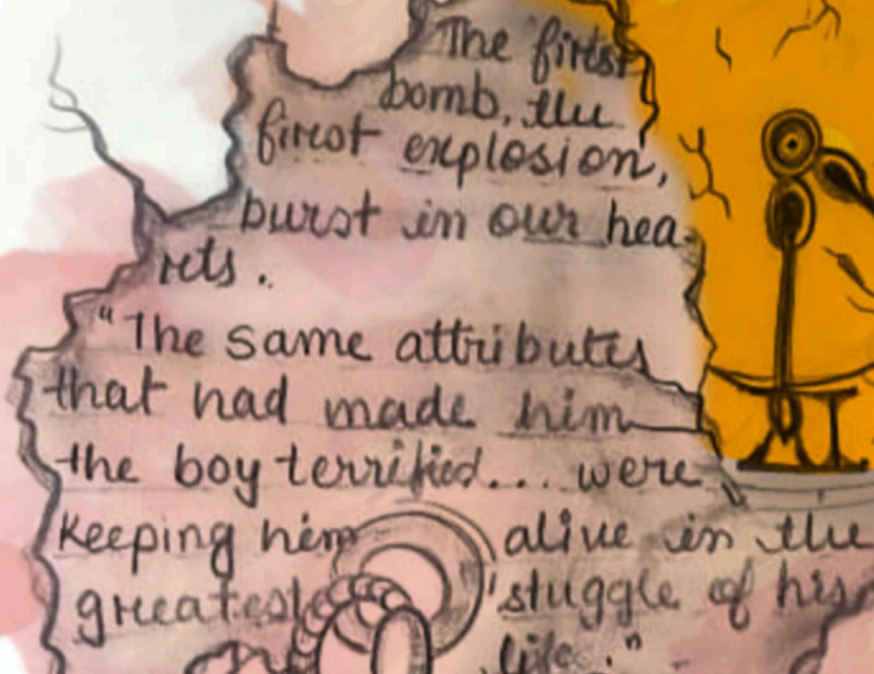 The first
bomb, the
first explosion,
burst in our hea-
rts.
"The same attributes
that had made him
the boy terrified... were
keeping him alive in the
greatest stuggle of his
life."